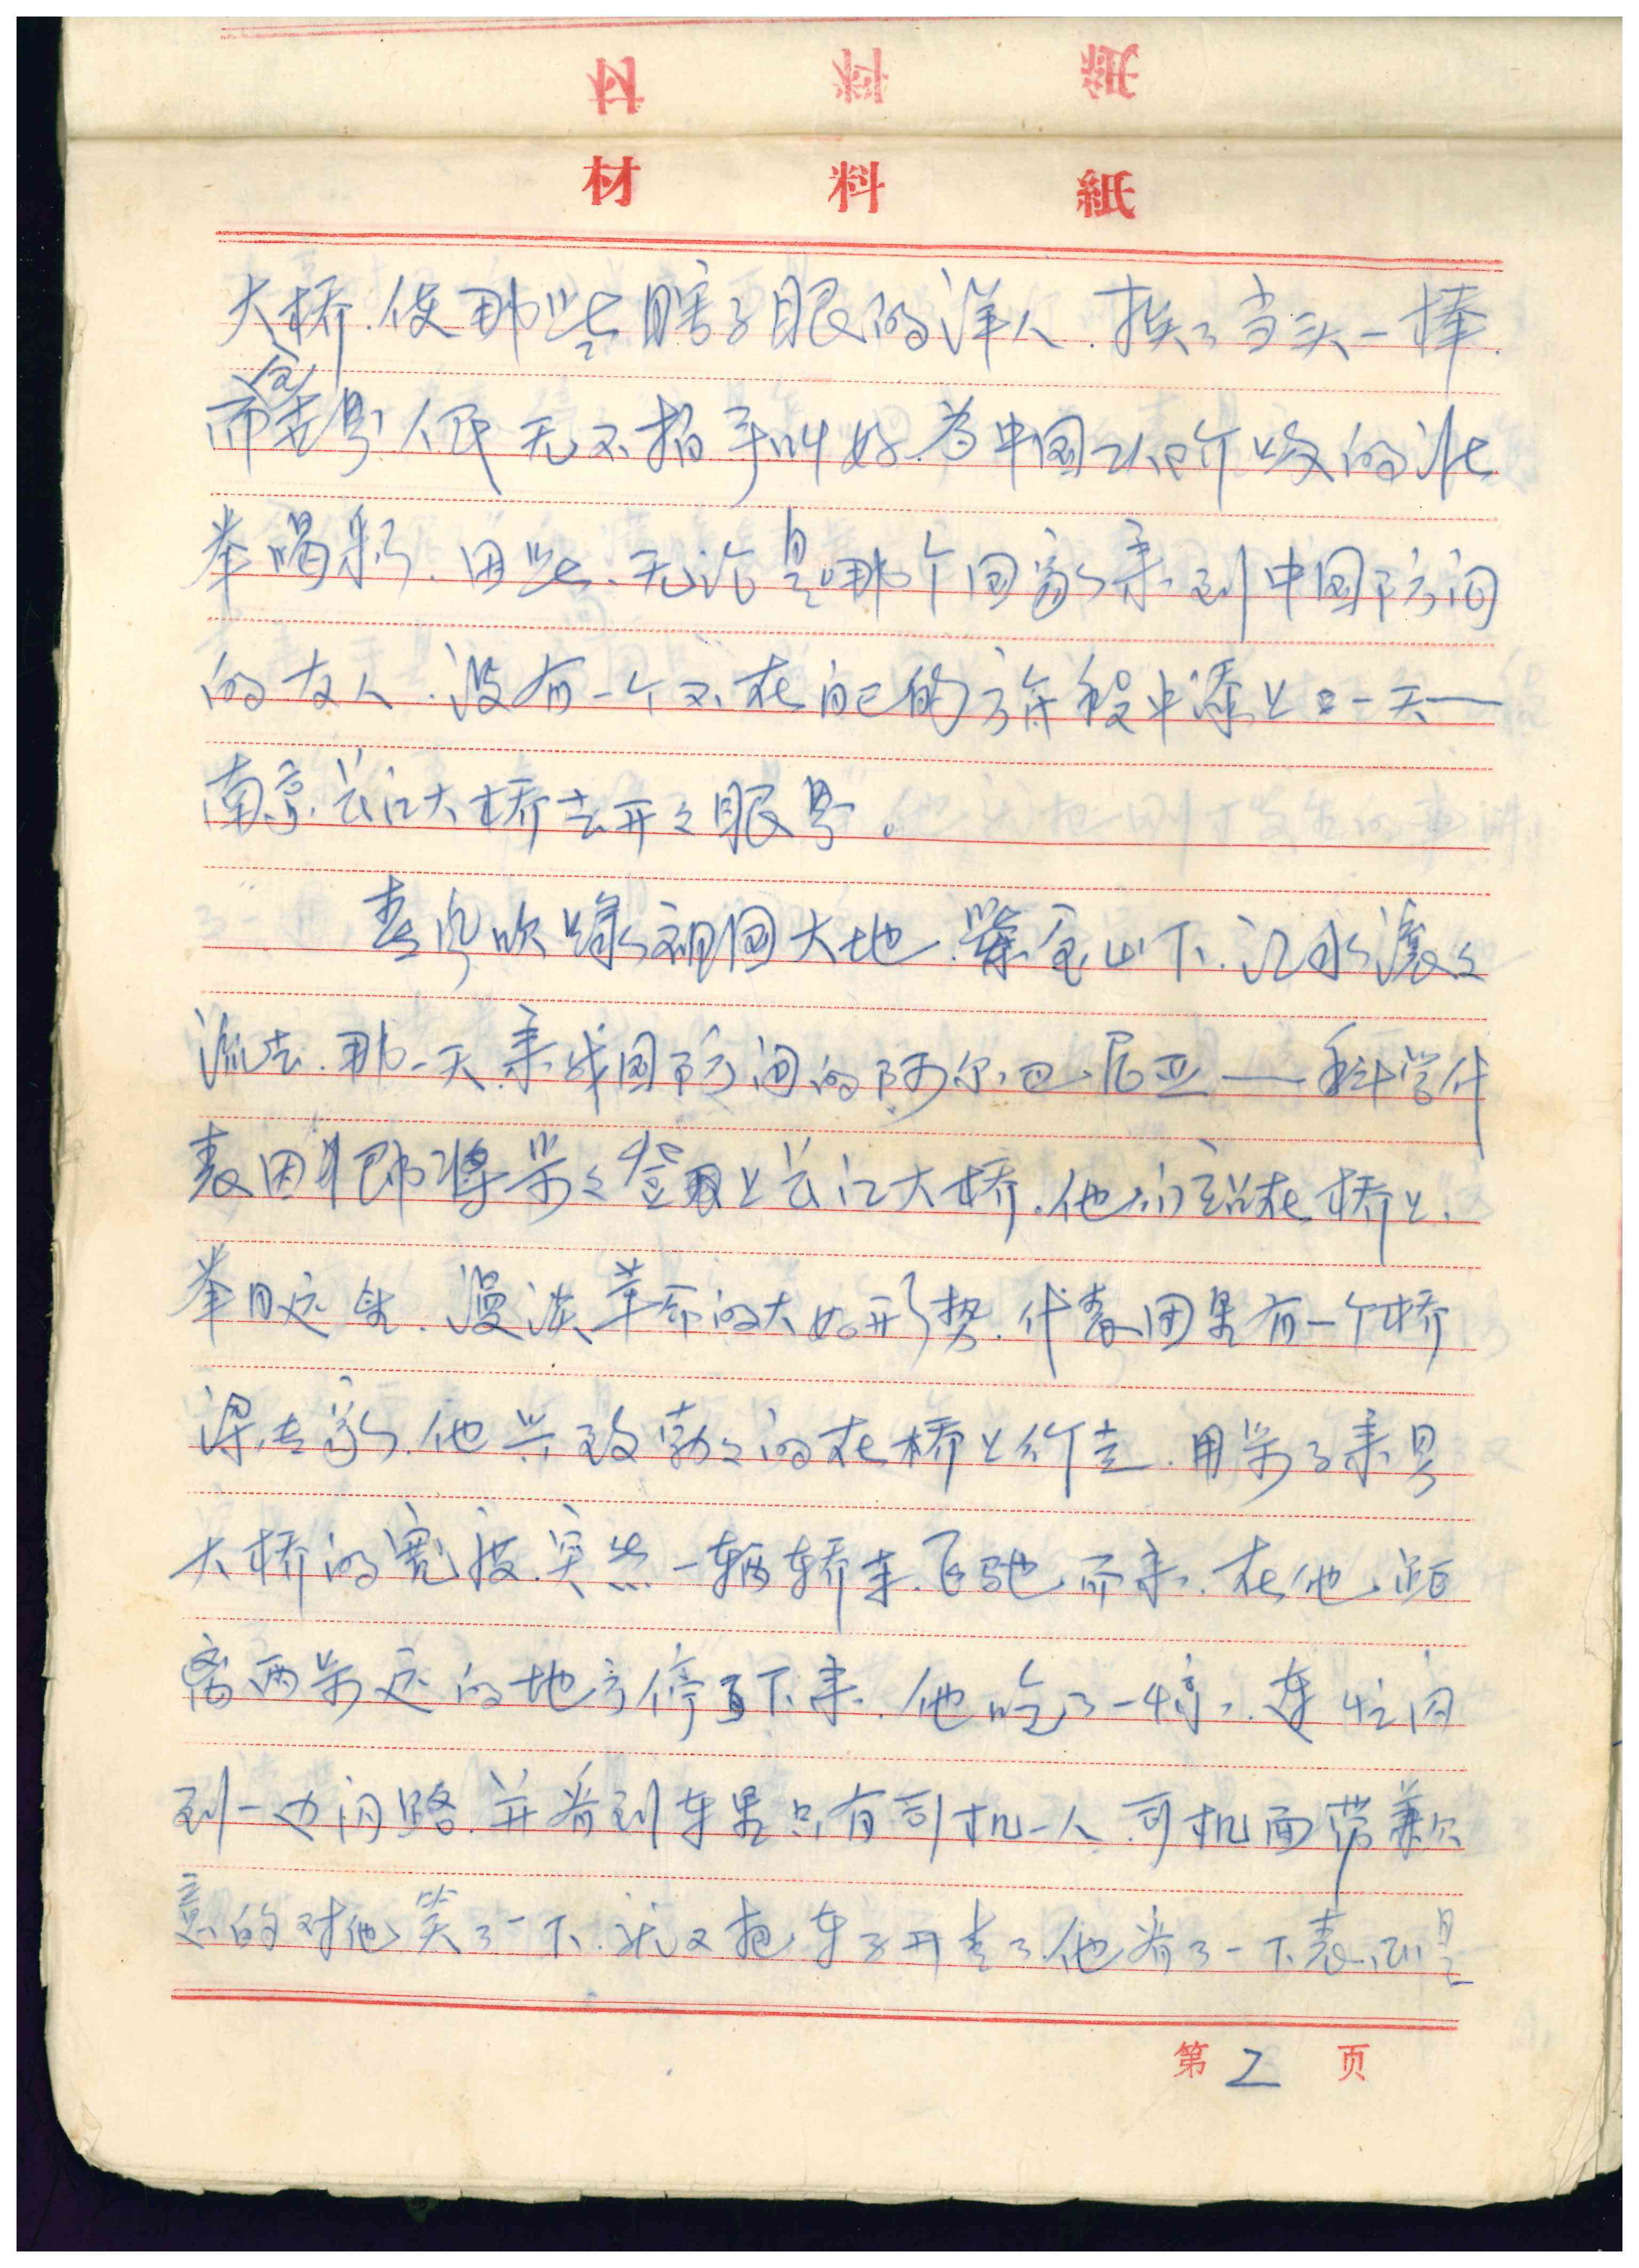 材料紙
大桥.使那些瞎了眼的洋人.挨了当头一棒.
而世界人民无不拍手叫好.为中国人民介峻的壮
举喝彩.因此.无论是那个国家来到中国访问
的友人.没有一个不在自己的旅程中添上一天——
南京.长江大桥去开々眼界。
春风吹绿祖国大地.紫金山下.江水滚々
流去.那一天.来我国访问的阿尔巴尼亚——科学代
表团即将步々登上长江大桥.他们站在桥上.
举目远望.漫谈革命的大好形势.代表团里有一个桥
梁专家.他兴致勃々的在桥上行走.用步子来量
大桥的宽度.突然一辆轿车.飞驰而来.在他.距
离两步远的地方停了下来.他吃了一惊.连忙闪
到一边闪路.并看到车里只有司机一人.司机面带兼欠
意的对他笑了一下.就又把车子开走了.他看了一下表.
第2页